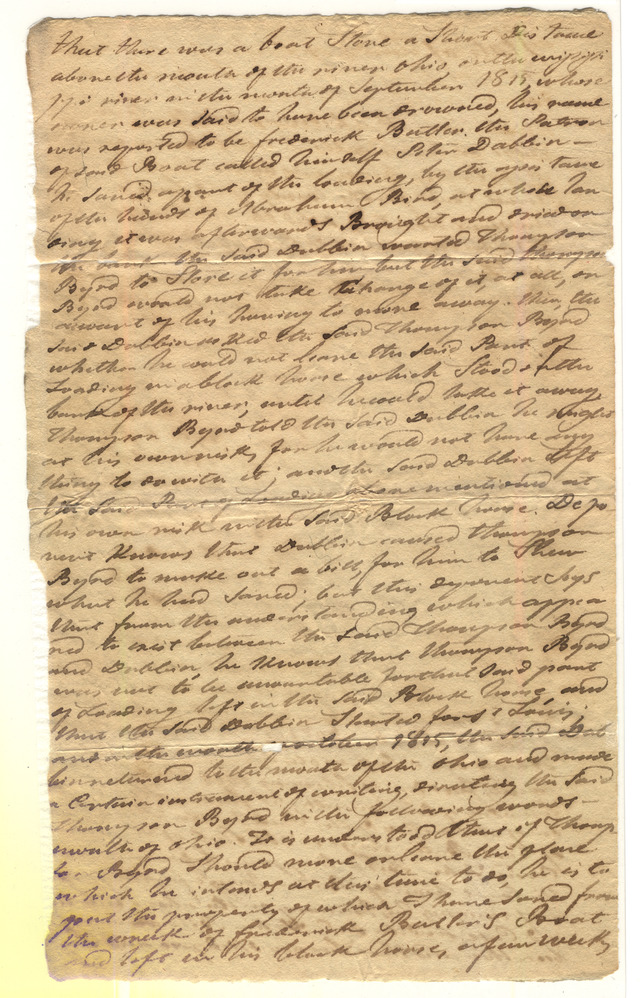 that there was a boat Stove a Short Distance
above the mouth of the river Ohio on the missisi
ppi river in the month of September 1815, whose
owner was said to have been drowned, his name
was reported to be frederick Butler. the Patroon
of said Boat called himself Peter Dabbin –
he Saved a part of the loading, by the assistance
of the hands of Abraham Bird, at whose lan
ding it was afterwards Brought and dried on
the bank the Said Dubbin wanted Thompson
Byrd to Store it for him but the said Thompson
Byrd would not take Charge of it, at all, on
account of his having to move away. then the
Said Dubbin asked the said Thompson Byrd
whether he could not leave the said Part of
Loading in a block house which Stood on the
bank of the river, until he could take it away,
Thompson Byrd told the Said Dubbin he might
at his own risk, for he would not have any
thing to do with it; and the Said Dubbin left
the Said Part of Loading above mentioned at
his own risk in the Said Block house. Depo
nent Knows that Dubbin caused thompson
Byrd to make out a bill, for him to Shew
what he had Saved; but this deponent Says
that from the understanding which appea
red to exist between the Said Thompson Byrd
and Dubbin he Knows that thompson Byrd
was not to be accountable for that said part
of Loading left in the Said Block house, and
that the Said Dubbin Started for St Louis;
and in the month october 1815, the said Dub
bin returned to the mouth of the Ohio and made
a Certain instrument of writing, directing the Said
Thompson Byrd in the following words –
mouth of ohio. It is understood that if Thomp
son Byrd Should move or leave the place
which he intends at this time to do, he is to
the property of which I have Saved from
the wreck of frederick Butler's Boat
and left in his block house, a few weeks